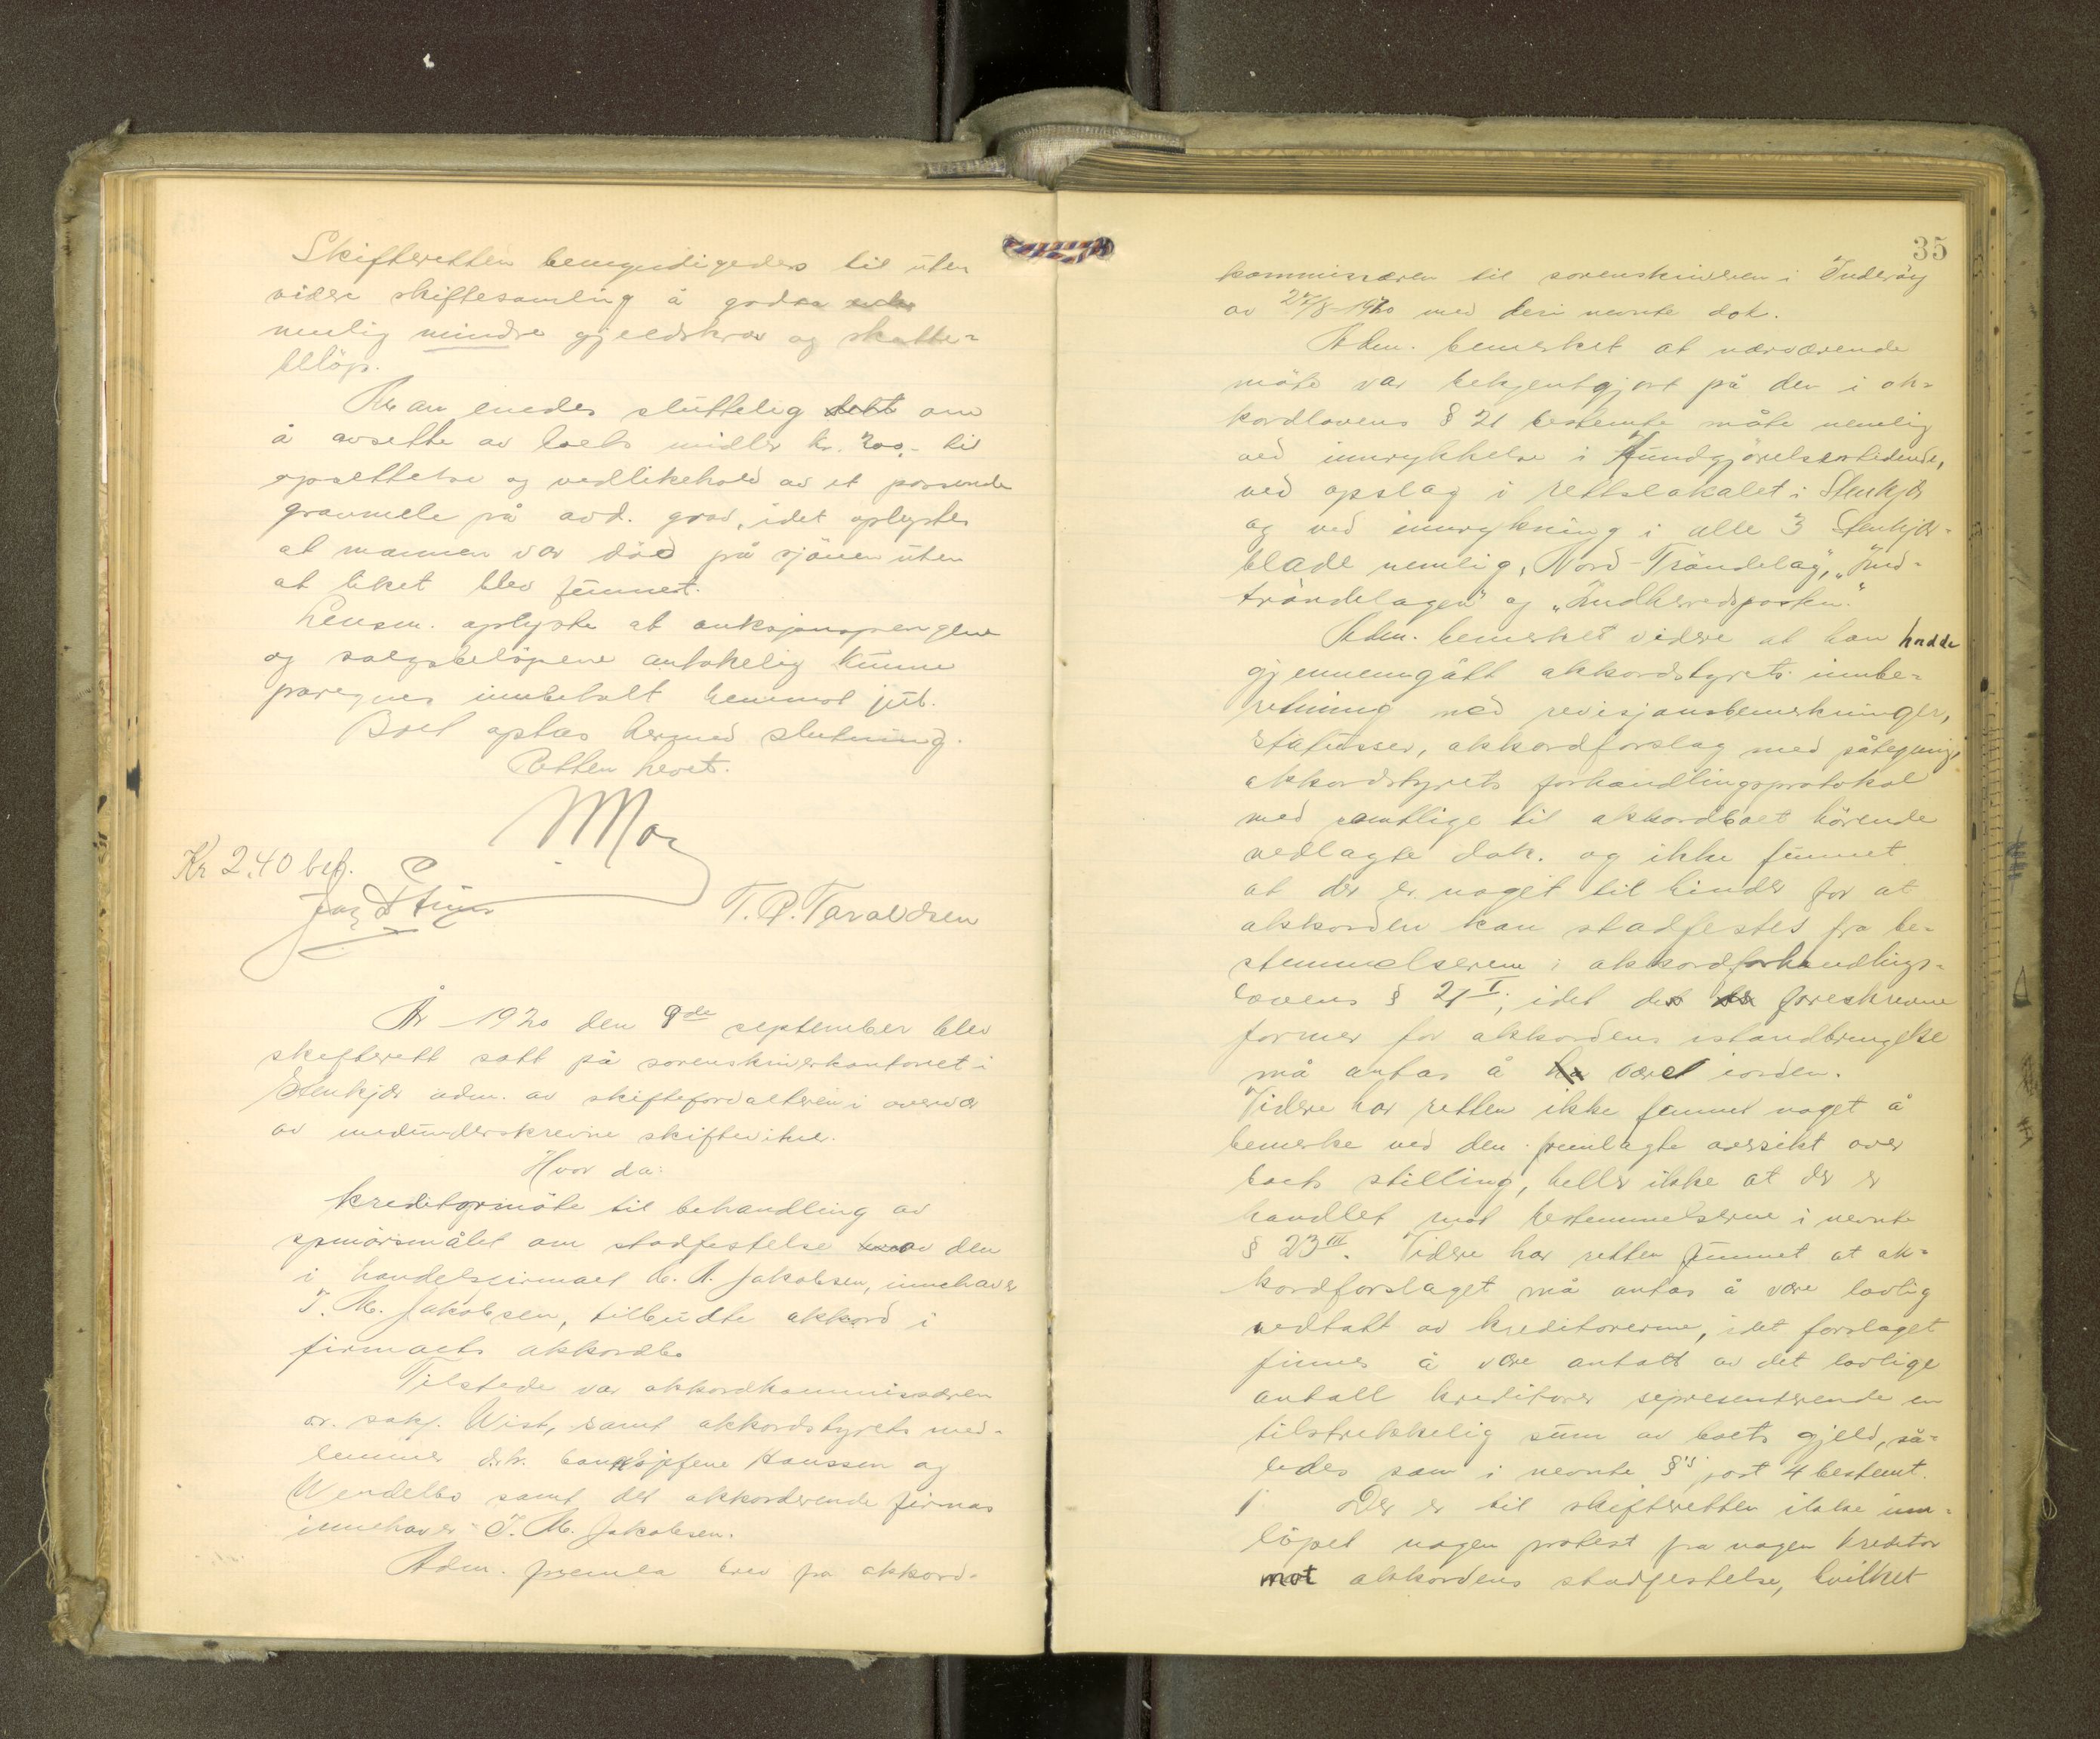 Skifteretten bemyndigedes til uten
videre skiftesamling å godta
nemlig mindre gjeldskrav og skatte-
beløp.
Man enedes sluttelig om
å avsette av boets midler kr. 200,- til
opsettelse og vedlikehold av et passende
gravmele på avd. grav, idet oplystes
at mannen var død på sjøen uten
at liket blev funnet.
Lensm. oplyste at auksjonspengene
og salgsbeløpene antakelig kunne
paregnes innbetalt henimot jul.
Boet optas hermed slutning.
Retten hevet.
Kr 2.40 bet.
T. P. Taraldsen
År 1920 den 9de september blev
skifterett satt på sorenskriverkontoret i
Stenkjær adm. av skifteforvalteren i overvær
av medunderskrevne skiftevitne.
Hvor da:
kreditormøte til behandling av
spørsmålet om stadfestelse av den
i handelsfirmaet M. Jakobsen, innehaver
T. M. Jakobsen, tilbudte akkord i
firmaets akkordbo
Tilstede var akkordkommissæren
o.r. sakf. Wist, samt akkordstyrets med-
lemmer d.hr. banksjefene Hanssen og
Wendelbo samt det akkorderende firmas
innehaver T. M. Jakobsen.
Adm. fremla brev fra akkord-
35
kommissæren til sorenskriveren i Inderøy
av 27/8-1920 med deri nevnte dok.
Adm. bemerket at nærværende
møte var bekjentgjort på den i ak-
kordlovens § 21 bestemte måte nemlig
ved innrykkelse i Kundgjørelsestidende,
ved opslag i rettslokalet i Stenkjær
og ved innrykning i alle 3 Stenkjær-
blade nemlig, Nord-Trøndelag", "Ind-
trøndelagen" og "Indherredsposten".
Adm. bemerket videre at han hadde
gjennemgått akkordstyrets innbe-
retning med revisjonsbemerkninger,
statusser, akkordforslag med påtegning,
akkordstyrets forhandlingsprotokol
med samtlige til akkordboet hørende
vedlagte dok. og ikke funnet
at der er noget til hinder for at
akkorden kan stadfestes fra be-
stemmelserne i akkordforhandlings-
lovens § 21 I, idet de foreskrevne
former for akkordens istandbringelse
må antas å være iorden.
Videre har retten ikke funnet noget å
bemerke ved den fremlagte oversikt over
boets stilling, heller ikke at der er
handlet mot bestemmelserne i nevnte
§ 23 III. Videre har retten funnet at ak-
kordforslaget må antas å være lovlig
vedtatt av kreditorerne, idet forslaget
finnes å være antatt av det lovlige
antall kreditorer representerende en
tilstrekkelig sum av boets gjeld, så-
ledes som i nevnte §'s post 4 bestemt.
Der er til skifteretten ikke inn-
løpet nogen protest fra nogen kreditor
mot akkordens stadfestelse, hvilket